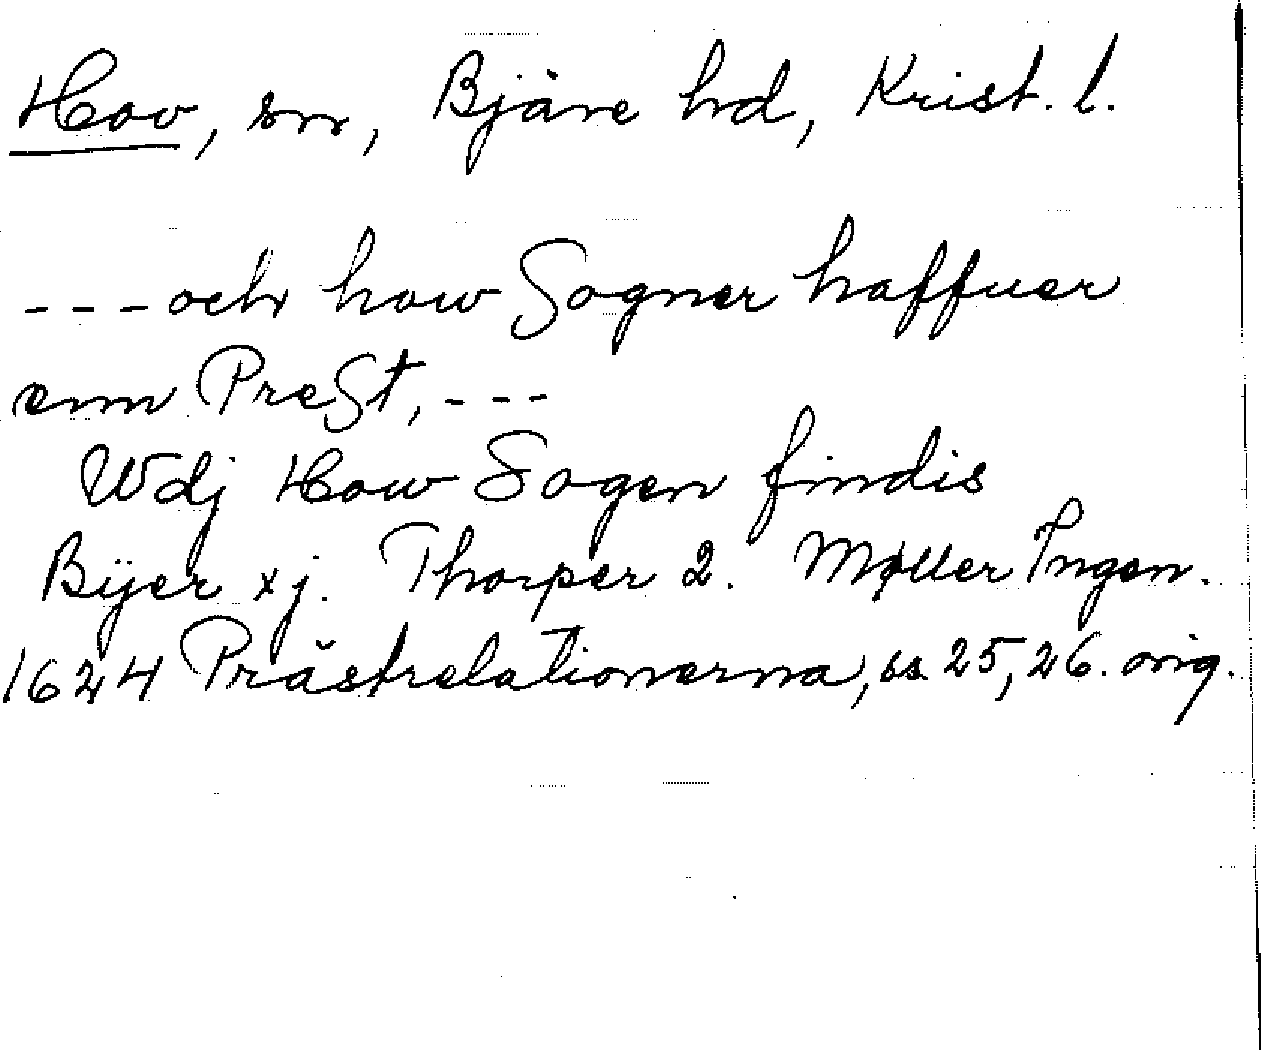 Hov, sn, Bjäre hd, Krist. l.
---och how Sogner haffuer
enn PreSt, ---
Wdj How Sogen findis
Byer xj. Thorper 2. Møller Ingen.
1624 Prästrelationerna, ss. 25, 26. orig.